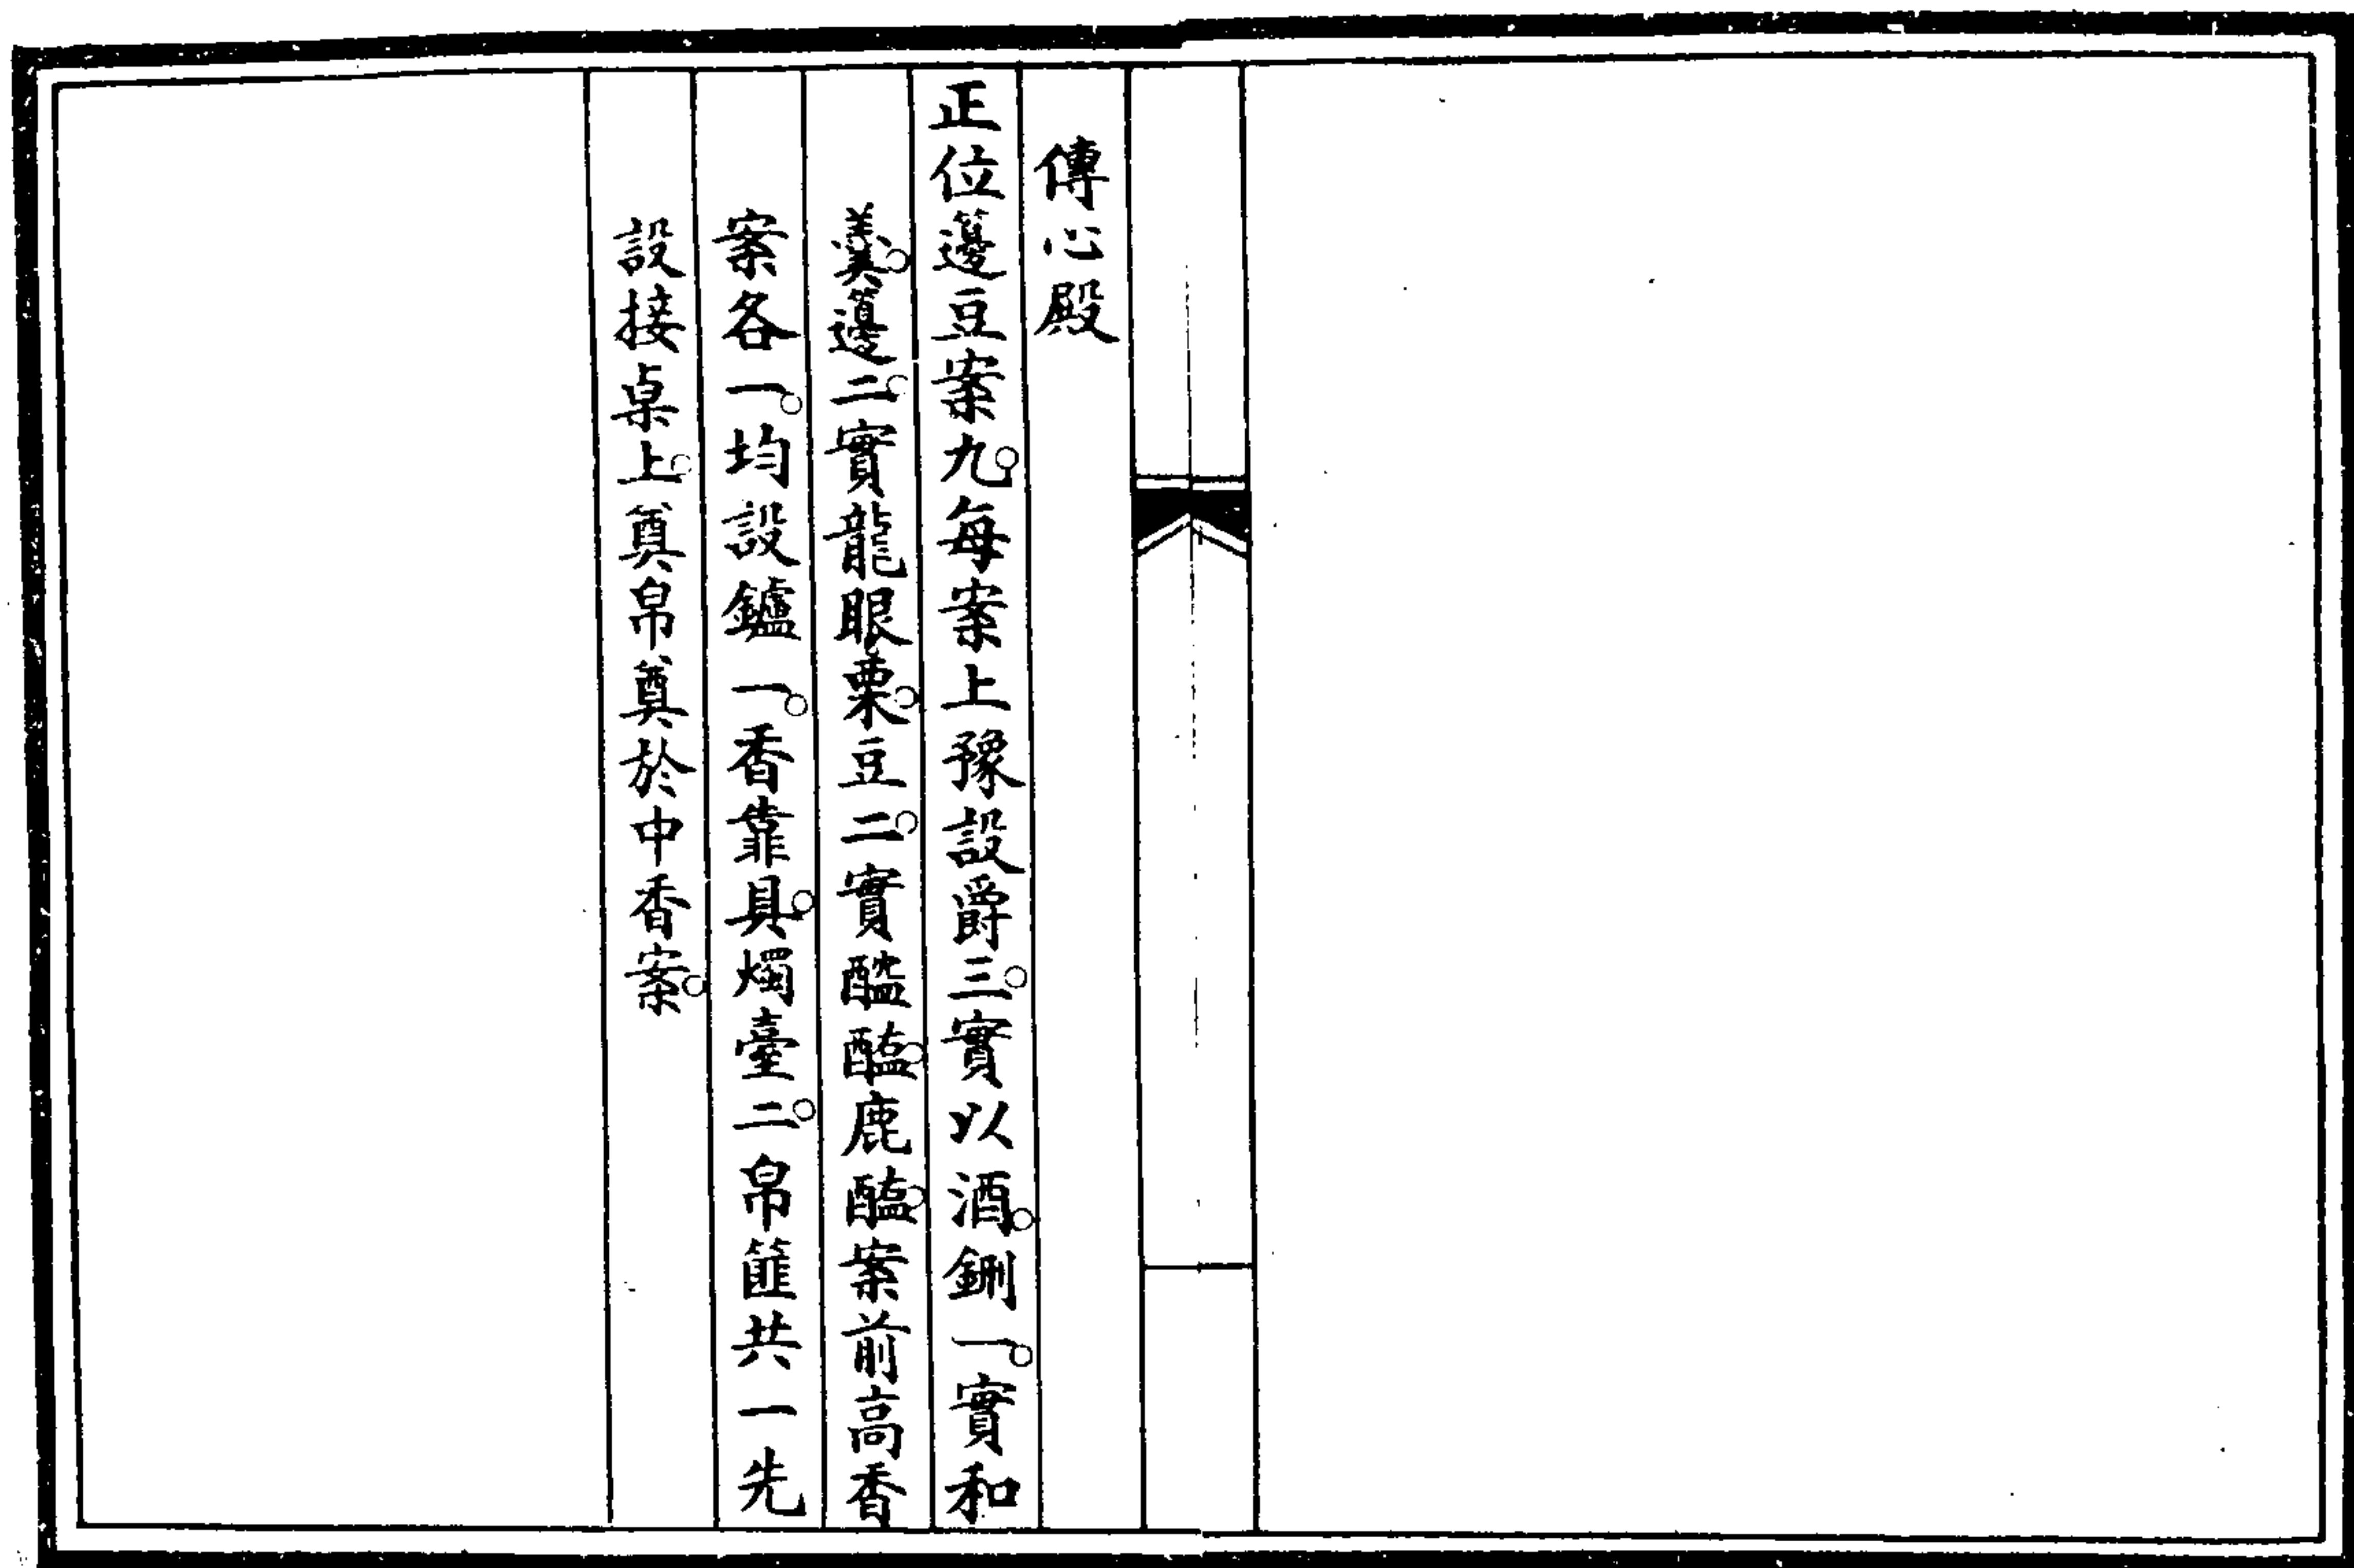 傳心殿
正位籩豆案九。每案上豫設爵三。實以酒。鉶一。實和
羹。籩二。實龍眼栗。豆二。實醓醢。鹿醢。案前高香
案各一。均設鑪一。香靠具。燭臺二。帛篚共一先
設接桌上。奠帛奠於中香案。